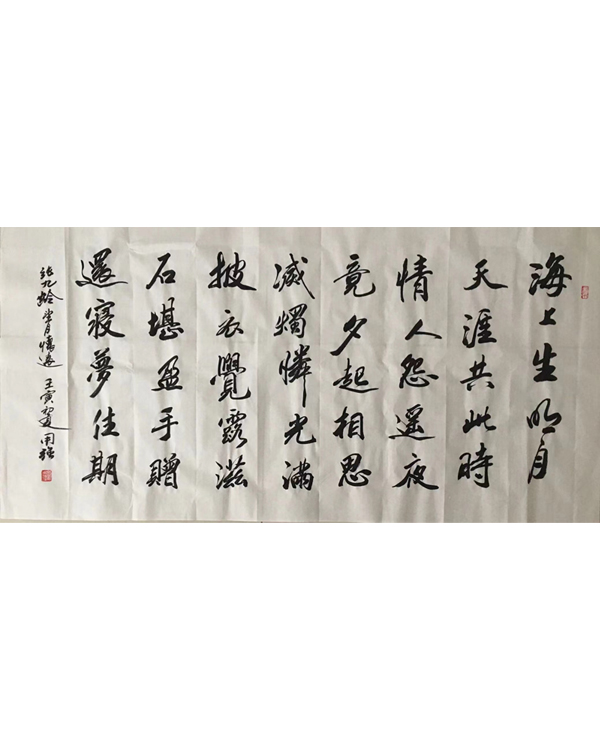 海上生明月
天涯共此時
情人怨遥夜
竟夕起相思
滅燭憐光滿
披衣覺露滋
石堪盈手贈
還寢夢佳期
張九齡望月懷遠 壬寅初夏